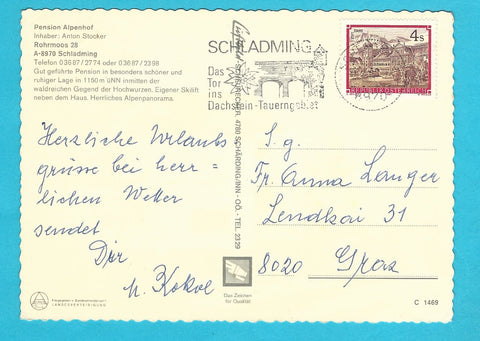 Pension Alpenhof
Inhaber: Anton Stocker
Rohrmoos 28
A-8970 Schladming
Telefon 03687/2774 oder 03687/2398
Gut geführte Pension in besonders schöner und
ruhiger Lage in 1150 m üNN inmitten der
waldreichen Gegend der Hochwurzen. Eigener Skilift
neben dem Haus. Herrliches Alpenpanorama.
SCHLADMING
Das
Tor
ins
Dachstein-Tauerngebiet
4s
REPUBLIK ÖSTERREICH
4780 SCHÄRDING/INN - OÖ. - TEL. 2329
Herzliche Urlaubs
grüsse bei herr-
lichen Wetter
sendet
Dir
S. g.
Fr. Anna Langer
Lendkai 31
8020 Graz
Das Zeichen
für Qualität
LANDESVERTEIDIGUNG
C 1469